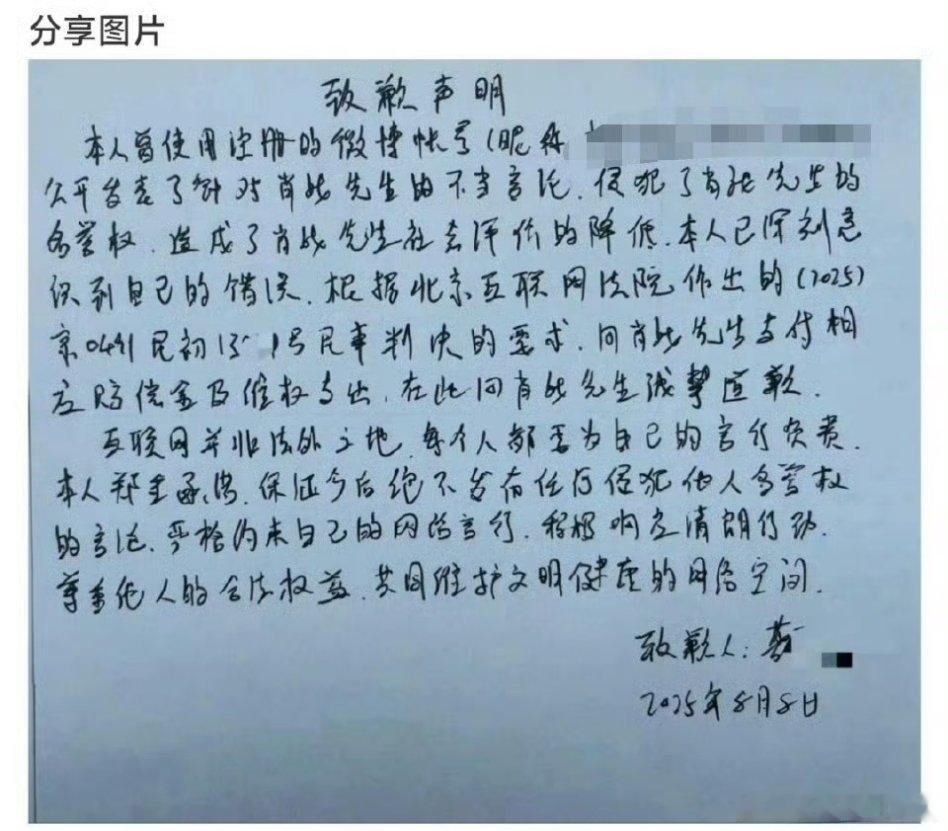 分享图片
致歉声明
本人曾使用注册的微博帐号(昵称
公开发表了针对肖战先生的不当言论,侵犯了肖战先生的
名誉权,造成了肖战先生社会评价的降低。本人已深刻意
识到自己的错误,根据北京互联网法院作出的(2025)
京0491民初1号民事判决的要求,向肖战先生支付相
应赔偿金及维权支出,在此向肖战先生诚挚道歉。
互联网并非法外之地,每个人都要为自己的言行负责。
本人郑重承诺,保证今后绝不发布任何侵犯他人名誉权
的言论,严格约束自己的网络言行,积极响应清朗行动,
尊重他人的合法权益,共同维护文明健康的网络空间。
致歉人:
2025年8月8日